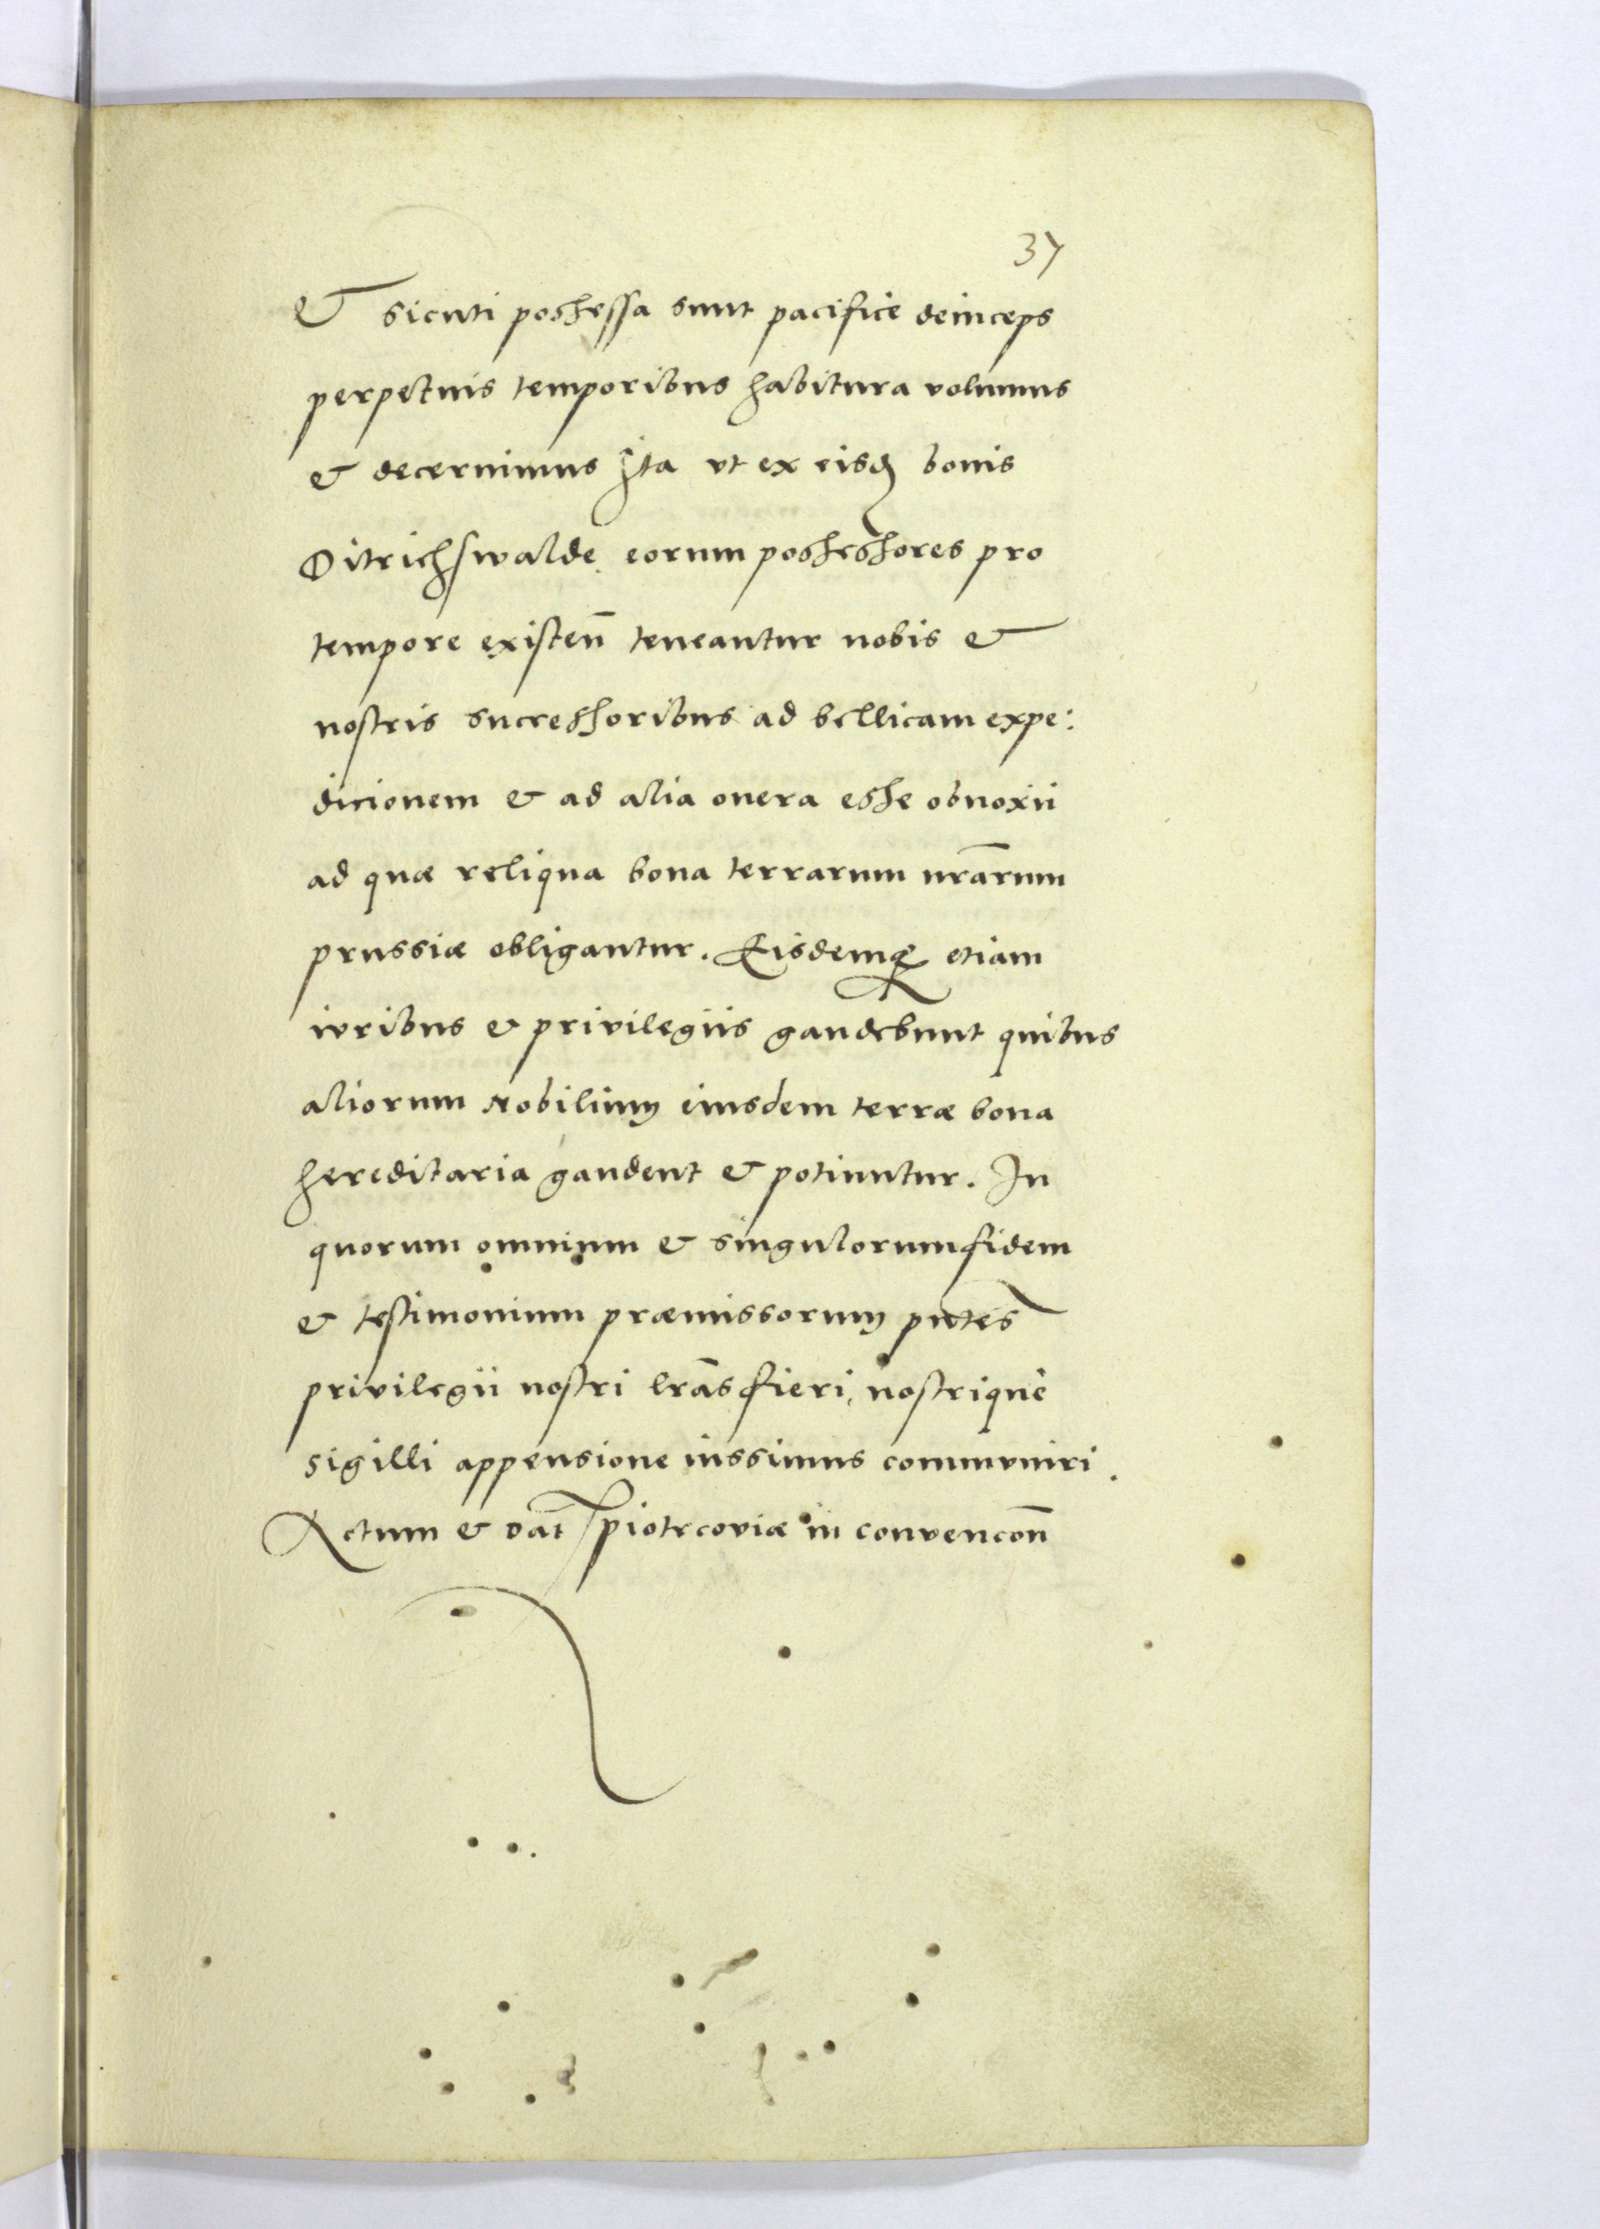 37
& sicuti possessa sunt pacifice deinceps
perpetuis temporibus habitura volumus
& decernimus Ita vt ex eisd bonis
Ditrichswalde eorum possessores pro
tempore existen̄ teneantur nobis &
nostris successoribus ad bellicam expe:
dicionem & ad alia onera esse obnoxii
ad quæ reliqua bona terrarum nr̄arum
prussiæ obligantur. Eisdemq; etiam
iuribus & privilegiis gaudebunt quibus
aliorum Nobilium eiusdem terræ bona
hereditaria gaudent & potiuntur. In
quorum omnium & singulorum fidem
& testimonium præmissorum pn̄tes
privilegii nostri lr̄as fieri, nostrique
sigilli appensione iussimus communiri.
Actum & dat̄ Piotrcoviæ in convencōn